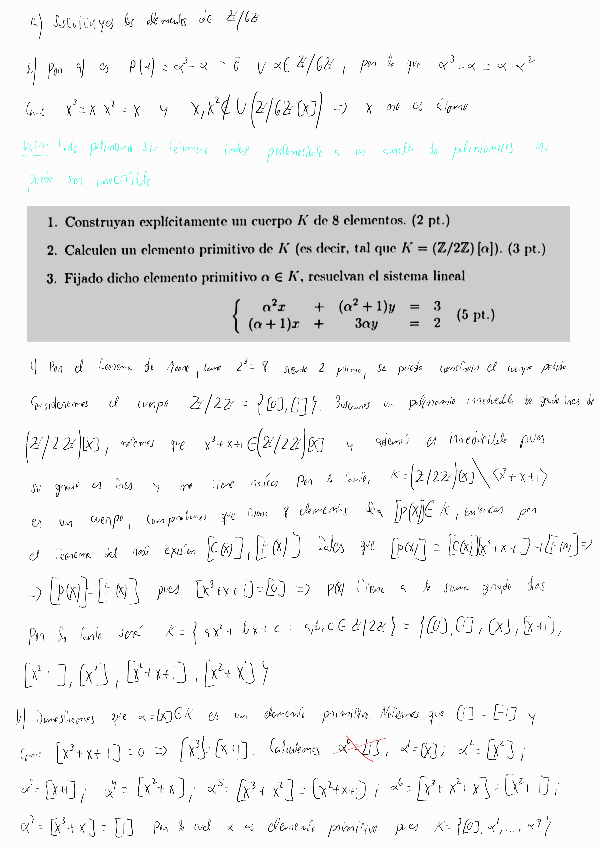 a) Sustituyes los elementos de Z/6Z
b) Por a) es P(α) = α³-α = 0 ∀ α∈ Z/6Z, por lo que
x³ = x x² = x y x, x² ∉ U(Z/6Z[x]) => x no es
Nota: Todo polinomio sin término indep no
puede ser
1. Construyan explícitamente un cuerpo K de 8 elementos. (2 pt.)
2. Calculen un elemento primitivo de K (es decir, tal que K = (Z/2Z) [α]). (3 pt.)
3. Fijado dicho elemento primitivo α ∈ K, resuelvan el sistema lineal
{ α²x + (α² + 1)y = 3
(α + 1)x + 3αy = 2 (5 pt.)
1) Por el teorema de , como 2³ = 8 siendo 2 primo, se puede construir el cuerpo pedido
Consideremos el cuerpo Z/2Z = {[0], [1]}. Buscamos un polinomio irreducible de grado tres de
(Z/2Z)[x], notemos que x³+x+1 ∈ (Z/2Z)[x] y además es irreducible pues
su grado es tres y no tiene raíces. Por lo tanto, K = (Z/2Z)[x] \ <x³+x+1>
es un cuerpo, comprobemos que tiene 8 elementos. Sea [p(x)] ∈ K, entonces por
el teorema del existen [c(x)], [r(x)] tales que [p(x)] = [c(x)][x³+x+1] + [r(x)] =>
=> [p(x)] = [r(x)] pues [x³+x+1] = [0] => r(x) tiene a lo sumo grado dos
Por lo tanto será K = { ax² + bx + c : a,b,c ∈ Z/2Z } = {[0], [1], [x], [x+1],
[x²+1], [x²], [x²+x+1], [x²+x]}
b) Demostremos que α = [x] ∈ K es un elemento primitivo. Notemos que [1] = [-1] y
como [x³+x+1] = 0 => [x³] = [x+1]. Calculemos α¹ = [x]; α² = [x²];
α³ = [x+1]; α⁴ = [x²+x]; α⁵ = [x³+x²] = [x²+x+1]; α⁶ = [x³+x²+x] = [x²+1];
α⁷ = [x³+x] = [1] Por lo cual α es elemento primitivo pues K = {[0], α¹, ..., α⁷}